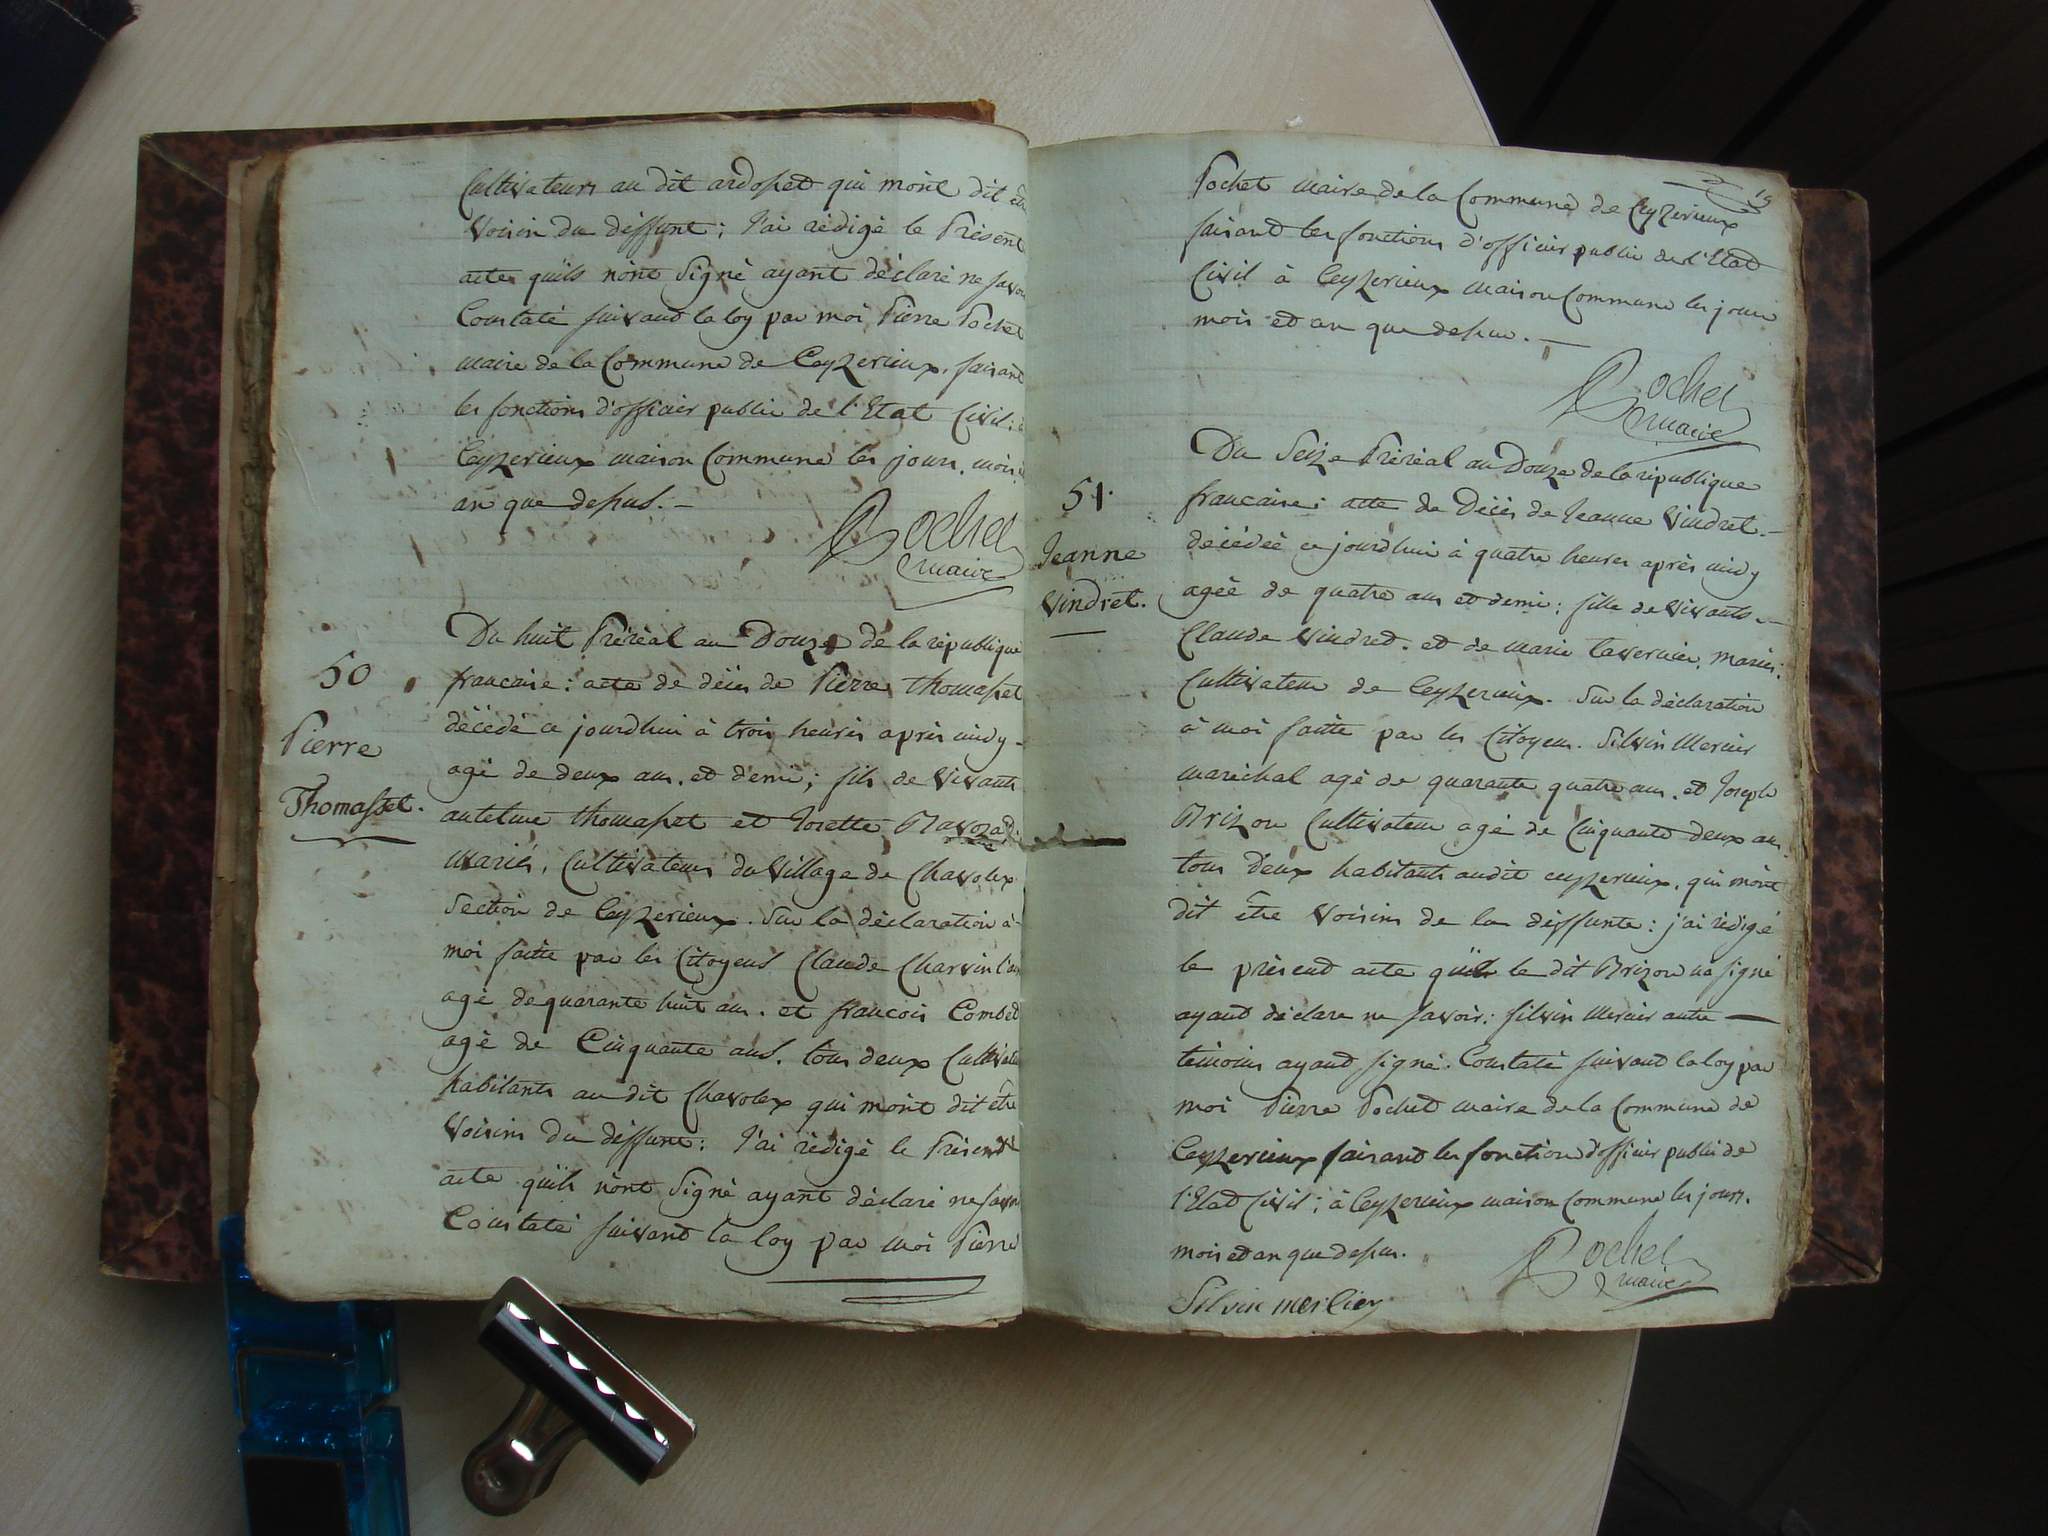 Cultivateurs au dit ardosset qui mont dit être
Voisin du deffunt; J'ai rédigé le Présent
acte quils nont Signé ayant déclaré ne savoir
Constaté suivand la loy par moi Pierre Pochet
maire de la Commune de Ceyzerieux, faisant
les fonctions d'officier public de l'Etat Civil: à
Ceyzerieux maison Commune les jours, mois
an que dessus. —
Pochet
maire
50
Pierre
Thomasset.
Du huit Préréal an Douze de la république
francaise: acte de décès de Pierre thomasset
décédé ce jourdhui à trois heures après midy -
agé de deux ans. et demi; fils de Vivants
antelme thomasset et Josette
mariés, Cultivateurs du Village de Chavolex
Section de Ceyzerieux. Sur la déclaration à
moi faitte par les Citoyens Claude Charvin
agé de quarante huit ans. et francois Combet
agé de Cinquante ans. tous deux Cultivateurs
habitants au dit Chavolex qui mont dit être
Voisins du deffunt: J'ai rédigé le Présend
acte quils nont Signé ayant déclaré ne savoir
Constaté suivand la loy par moi Pierre
19
Pochet maire de la Commune de Ceyzerieux
faisand les fonctions d'officier public de l'Etat
Civil à Ceyzerieux maison Commune les jours
mois et an que dessus. —
Pochet
maire
51.
Jeanne
Vindret.
Du Seize Préréal an Douze de la république
francaise: acte de Décès de Jeanne Vindret. —
décédée ce jourdhui à quatre heures après midy
agée de quatre ans et demi: fille de Vivants —
Claude Vindret. et de marie tavernier, mariés:
Cultivateurs de Ceyzerieux. Sur la déclaration
à moi faitte par les Citoyens. Silvin Mercier
maréchal agé de quarante quatre ans. et Joseph
Brizon Cultivateur agé de Cinquante deux ans.
tous deux habitants audit ceyzerieux, qui mont
dit être Voisins de la deffunte: j'ai rédigé
le présend acte le dit Brizon na signé
ayand déclaré ne savoir: silvin Mercier autre —
témoins ayand signé. Constaté suivand la loy par
moi Pierre Pochet maire de la Commune de
Ceyzerieux faisand les fonction d'officier public de
l'Etat Civil; à Ceyzerieux maison Commune les jours.
mois et an que dessus.
Pochet
maire
Silvin mercier